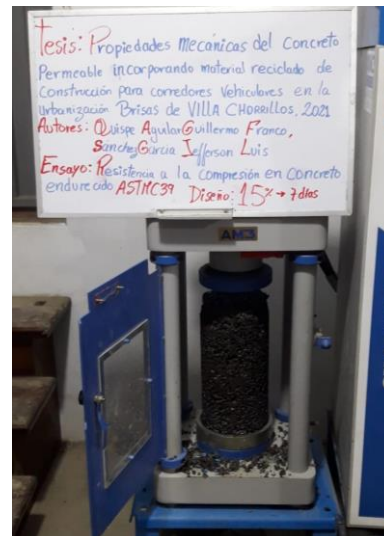 Tesis: Propiedades mecánicas del concreto
Permeable incorporando material reciclado de
Construcción para corredores vehiculares en la
Urbanización Brisas de VILLA CHORRILLOS, 2021
Autores: Quispe Aguilar Guillermo Franco,
Sanchez García Jefferson Luis
Ensayo: Resistencia a la compresión en Concreto
endurecido ASTMC39 Diseño: 15% → 7 días